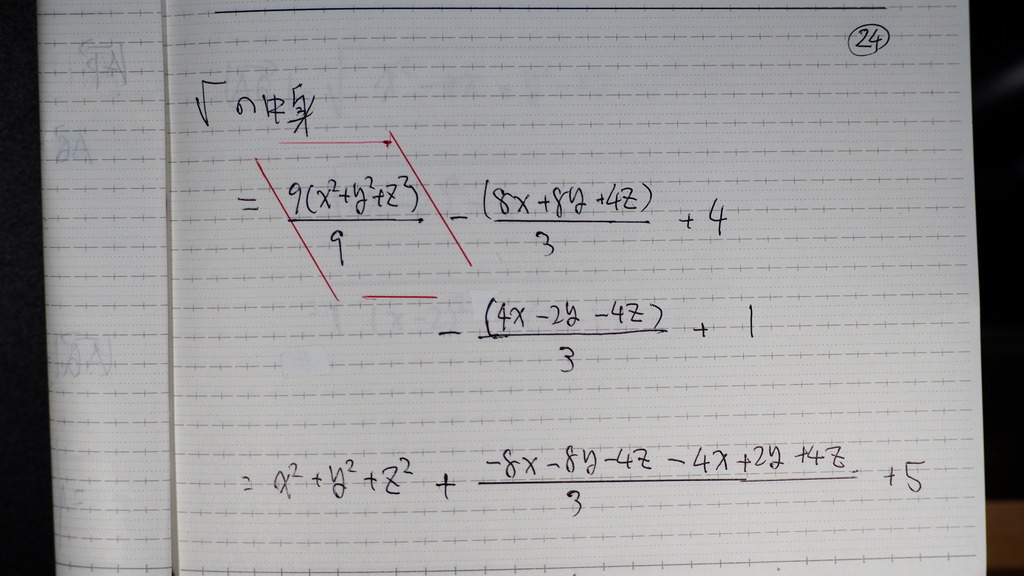 24
√の中身
= 9(x²+y²+z²)/9 - (8x+8y+4z)/3 + 4
- (4x-2y-4z)/3 + 1
= x²+y²+z² + (-8x-8y-4z-4x+2y+4z)/3 + 5